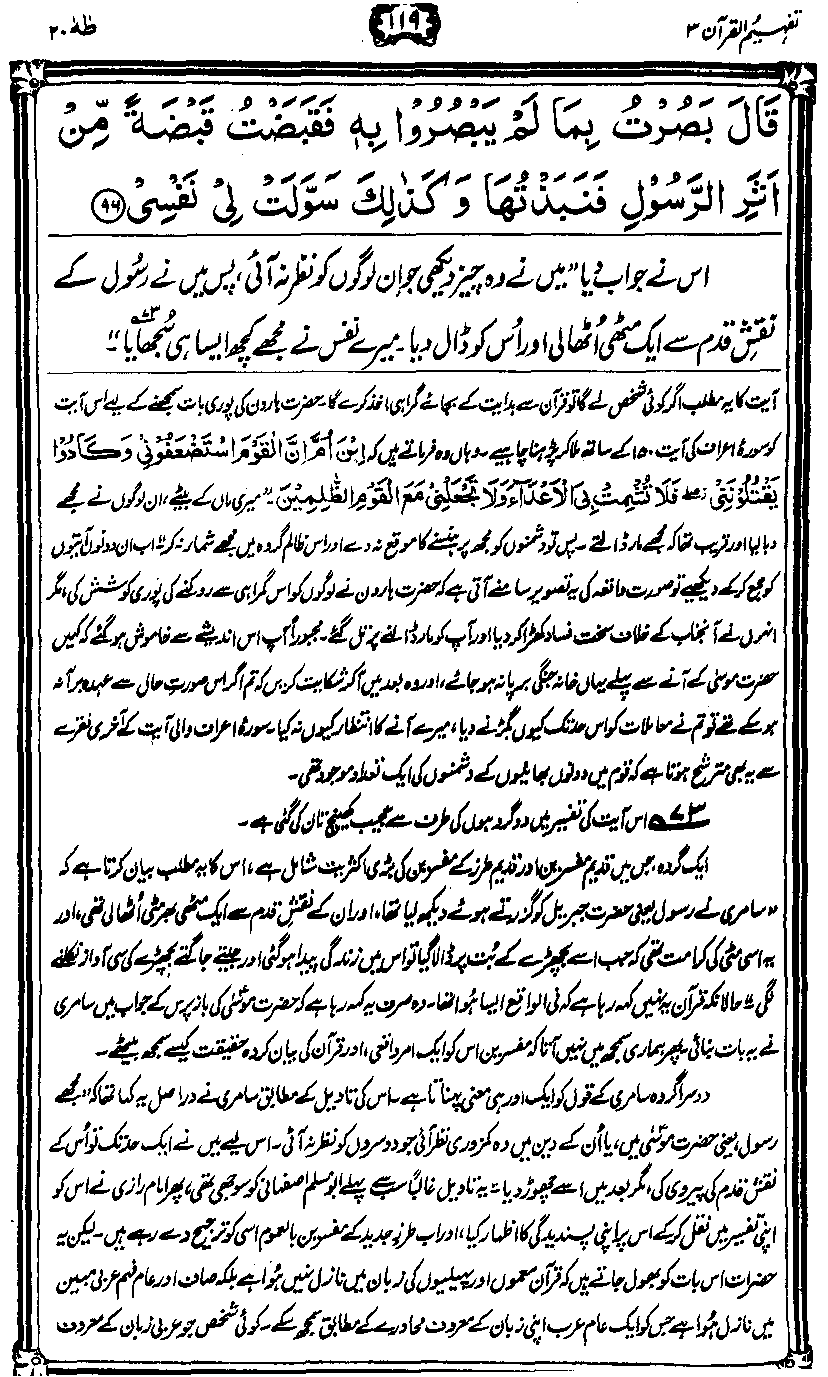 تفہیم القرآن ۳
۱۱۹
طٰہٰ ۲۰
قَالَ بَصُرْتُ بِمَا لَمْ يَبْصُرُوْا بِهٖ فَقَبَضْتُ قَبْضَةً مِّنْ
اَثَرِ الرَّسُوْلِ فَنَبَذْتُهَا وَكَذٰلِكَ سَوَّلَتْ لِيْ نَفْسِيْ ﴿۹۶﴾
اس نے جواب دیا "میں نے وہ چیز دیکھی جو اِن لوگوں کو نظر نہ آئی، پس میں نے رسُول کے
نقشِ قدم سے ایک مٹھی اُٹھالی اور اُس کو ڈال دیا۔ میرے نفس نے مجھے کچھ ایسا ہی سُجھایا"۔ ۷۳
آیت کا یہ مطلب اگر کوئی شخص لے گا تو قرآن سے ہدایت کے بجائے گمراہی اخذ کرے گا۔ حضرت ہارون کی پوری بات سمجھنے کے لیے اس آیت
کو سورۂ اعراف کی آیت ۱۵۰ کے ساتھ ملا کر پڑھنا چاہیے۔ وہاں وہ فرماتے ہیں کہ اِبْنَ اُمَّ اِنَّ الْقَوْمَ اسْتَضْعَفُوْنِيْ وَكَادُوْا
يَقْتُلُوْنَنِيْ فَلَا تُشْمِتْ بِيَ الْاَعْدَآءَ وَلَا تَجْعَلْنِيْ مَعَ الْقَوْمِ الظّٰلِمِيْنَ۔ "میری ماں کے بیٹے، ان لوگوں نے مجھے
دبا لیا اور قریب تھا کہ مجھے مار ڈالتے۔ پس تو دشمنوں کو مجھ پر ہنسنے کا موقع نہ دے اور اس ظالم گروہ میں مجھے شمار نہ کر"۔ اب ان دونوں آیتوں
کو جمع کر کے دیکھیے تو صورت واقعہ کی یہ تصویر سامنے آتی ہے کہ حضرت ہارون نے لوگوں کو اس گمراہی سے روکنے کی پُوری کوشش کی، مگر
انہوں نے آنجناب کے خلاف سخت فساد کھڑا کر دیا اور آپ کو مار ڈالنے پر تُل گئے۔ مجبوراً آپ اس اندیشے سے خاموش ہو گئے کہ کہیں
حضرت موسٰی کے آنے سے پہلے یہاں خانہ جنگی برپا نہ ہو جائے، اور وہ بعد میں آکر شکایت کریں کہ تم اگر اس صورتِ حال سے عہدہ برآ نہ
ہو سکے تھے تو تم نے معاملات کو اس حد تک کیوں بگڑنے دیا، میرے آنے کا انتظار کیوں نہ کیا۔ سورۂ اعراف والی آیت کے آخری فقرے
سے یہ بھی مترشح ہوتا ہے کہ قوم میں دونوں بھائیوں کے دشمنوں کی ایک تعداد موجود تھی۔
۷۳ اس آیت کی تفسیر میں دو گروہوں کی طرف سے عجیب کھینچ تان کی گئی ہے۔
ایک گروہ، جس میں قدیم مفسرین اور قدیم طرز کے مفسرین کی بڑی اکثریت شامل ہے، اس کا یہ مطلب بیان کرتا ہے کہ
"سامری نے رسول یعنی حضرت جبریل کو گزرتے ہوئے دیکھ لیا تھا، اور ان کے نقشِ قدم سے ایک مٹھی بھر مٹی اُٹھالی تھی، اور
یہ اسی مٹی کی کرامت تھی کہ جب اسے بچھڑے کے بُت پر ڈالا گیا تو اس میں زندگی پیدا ہو گئی اور جیتے جاگتے بچھڑے کی سی آواز نکلنے
لگی"۔ حالانکہ قرآن یہ نہیں کہہ رہا ہے کہ فی الواقع ایسا ہُوا تھا۔ وہ صرف یہ کہہ رہا ہے کہ حضرت موسٰی کی باز پرس کے جواب میں سامری
نے یہ بات بنائی۔ پھر ہماری سمجھ میں نہیں آتا کہ مفسرین اس کو ایک امر واقعی، اور قرآن کی بیان کردہ حقیقت کیسے سمجھ بیٹھے۔
دوسرا گروہ سامری کے قول کو ایک اور ہی معنی پہناتا ہے۔ اس کی تاویل کے مطابق سامری نے دراصل یہ کہا تھا کہ "مجھے
رسول، یعنی حضرت موسٰی میں، یا اُن کے دین میں وہ کمزوری نظر آئی جو دوسروں کو نظر نہ آئی۔ اس لیے میں نے ایک حد تک تو اُس کے
نقش قدم کی پیروی کی، مگر بعد میں اسے چھوڑ دیا"۔ یہ تاویل غالباً سب سے پہلے ابو مسلم اصفہانی کو سوجھی تھی، پھر امام رازی نے اس کو
اپنی تفسیر میں نقل کر کے اس پر اپنی پسندیدگی کا اظہار کیا، اور اب طرزِ جدید کے مفسرین بالعموم اسی کو ترجیح دے رہے ہیں۔ لیکن یہ
حضرات اس بات کو بھول جاتے ہیں کہ قرآن معموں اور پہیلیوں کی زبان میں نازل نہیں ہُوا ہے بلکہ صاف اور عام فہم عربی مبین
میں نازل ہُوا ہے جس کو ایک عام عرب اپنی زبان کے معروف محاورے کے مطابق سمجھ سکے۔ کوئی شخص جو عربی زبان کے معروف